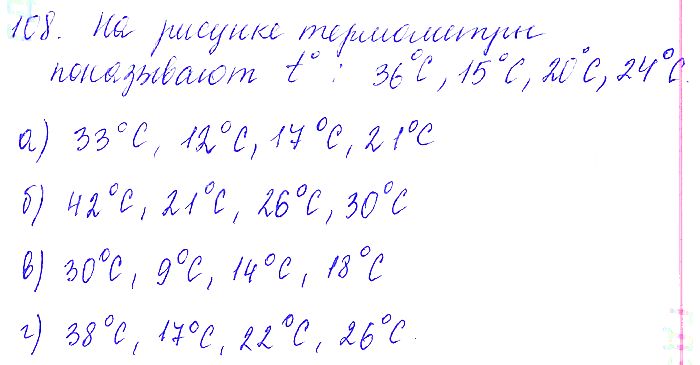 108. На рисунке термометры
показывают t°: 36°C, 15°C, 20°C, 24°C.
а) 33°C, 12°C, 17°C, 21°C
б) 42°C, 21°C, 26°C, 30°C
в) 30°C, 9°C, 14°C, 18°C
г) 38°C, 17°C, 22°C, 26°C.